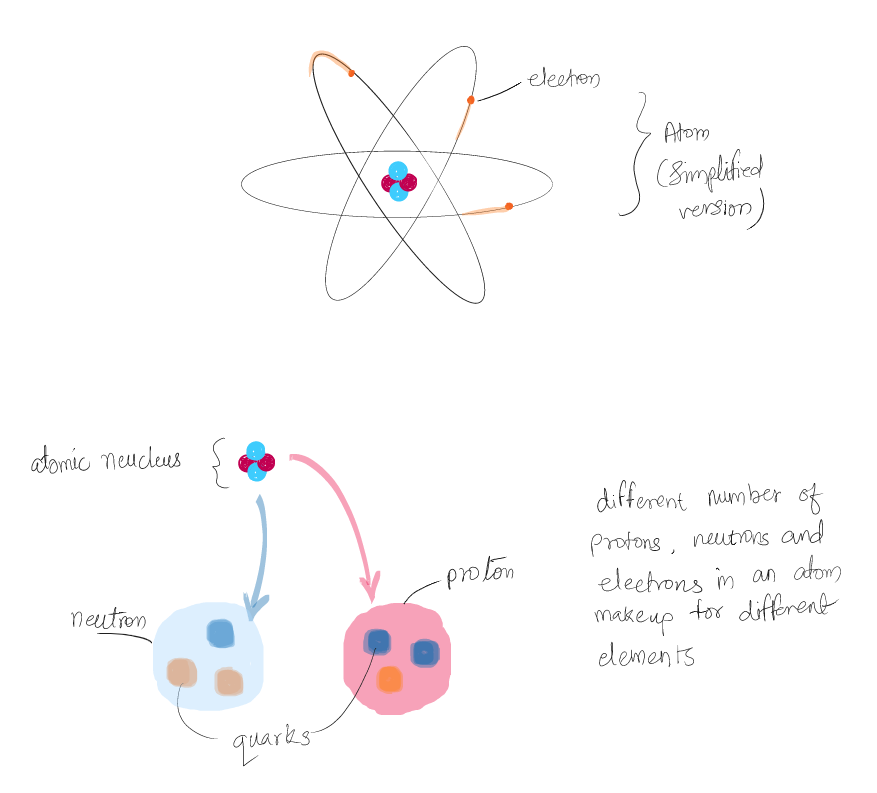 electron
Atom
(Simplified
version)
atomic neucleus
neutron
proton
quarks
different number of
protons, neutrons and
electrons in an atom
makeup for different
elements